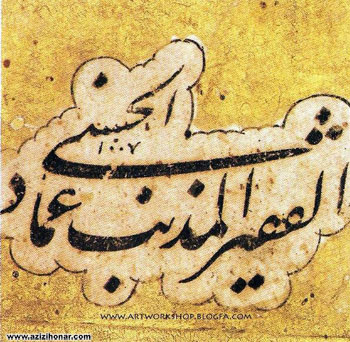 الفقیر المذنب عماد
الحسنی
۱۰۰۷
WWW.ARTWORKSHOP.BLOGFA.COM
www.azizihonar.com